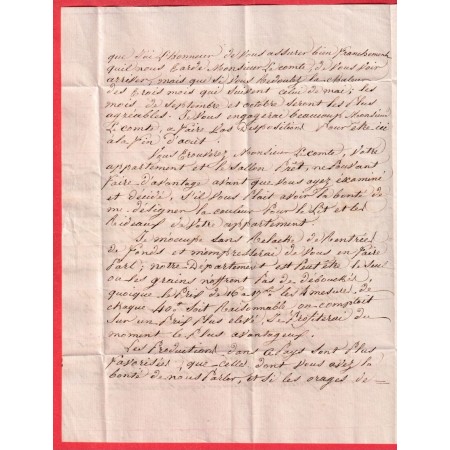 que j'ai L'honneur de Vous assurer bien franchement
quil nous tarde Monsieur Le comte, de Vous Voir
arriver, mais que si Vous Redoutez la chaleur
des trois mois que suivent celui de mai; les
mois de Septembre et octobre seront les Plus
agréables. Je Vous engagerai beaucoup Monsieur
Le comte, a faire Vos Dispositions Pour être ici
a la fin d'aout.
Vous trouverez Monsieur Le comte, Votre
appartement et le Sallon Prêt, ne Pouvant
faire d'avantage avant que Vous ayez examiné
et décidé, s'il Vous Plait avoir la bonté de
m. désigner la couleur Pour le Lit et les
Rideaux de Votre appartement.
Je m'occupe sans Relache de Rentrée
de fonds et m'empresserai de Vous en faire
Part; notre Département est Peut être le seul
ou les grains n'offrent Pas de débouchés
quoique le Prix de 16 a les 4 mesures, de
chaque 40 soit Raisonnable on comptait
sur un Prix Plus élevé. Je Profiterai du
moment le Plus avantageux.
Les Productions dans ce Pays sont Plus
favorisées que celles dont Vous avez la
bonté de nous Parler, et si les orages de